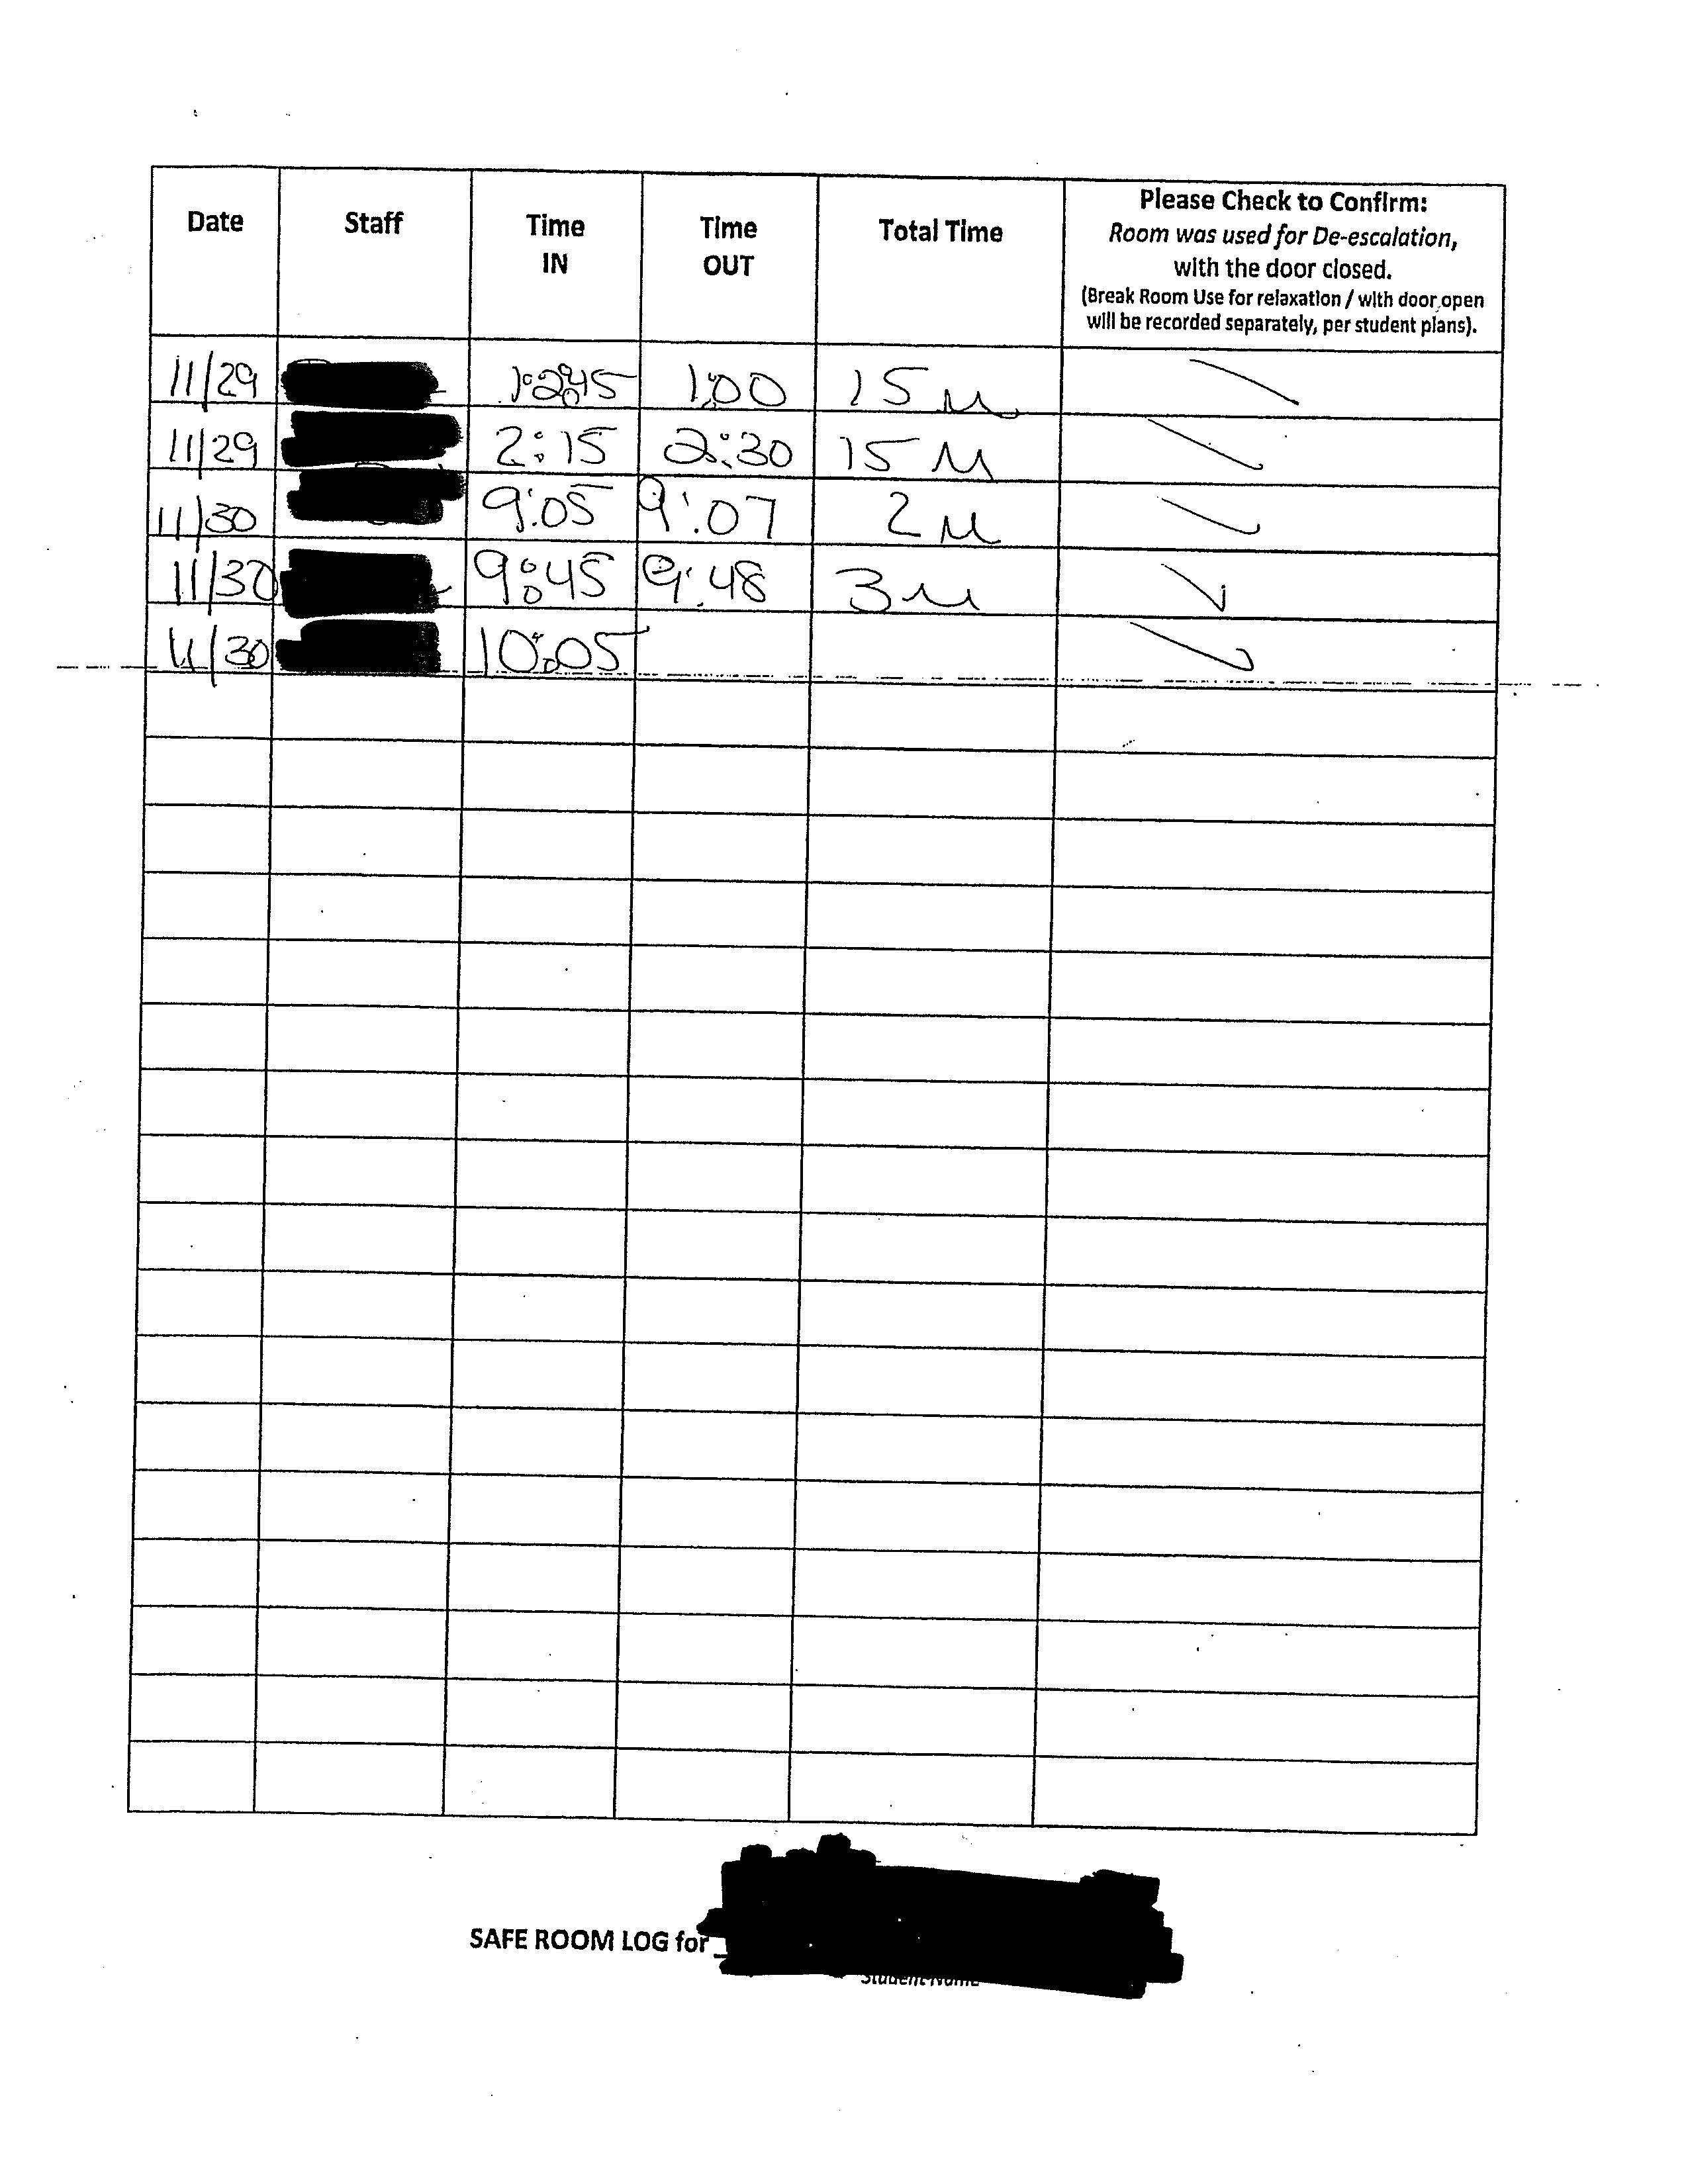 Date Staff Time IN Time OUT Total Time Please Check to Confirm:
Room was used for De-escalation,
with the door closed.
(Break Room Use for relaxation / with door open
will be recorded separately, per student plans).
11/29 12:45 1:00 15 M
11/29 2:15 2:30 15 M
11/30 9:05 9:07 2 M
11/30 9:45 9:48 3 M
11/30 10:05
SAFE ROOM LOG for
Student Name